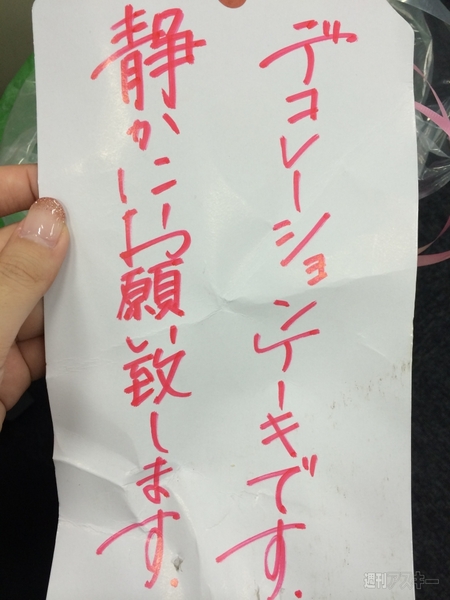 デコレーションケーキです.
静かにお願い致します.
週刊アスキー